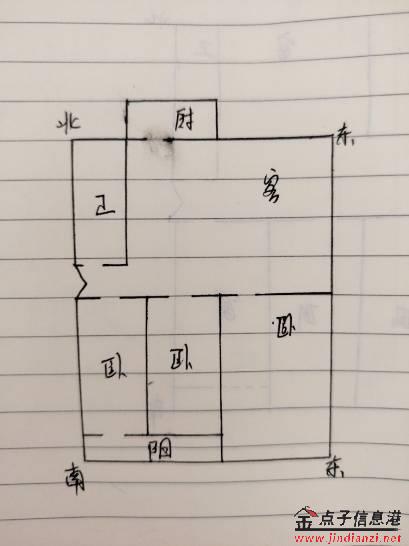 厨
北
东
客
卫
卧
卧
卧
阳
南
东
金点子信息港
www.jindianzi.net